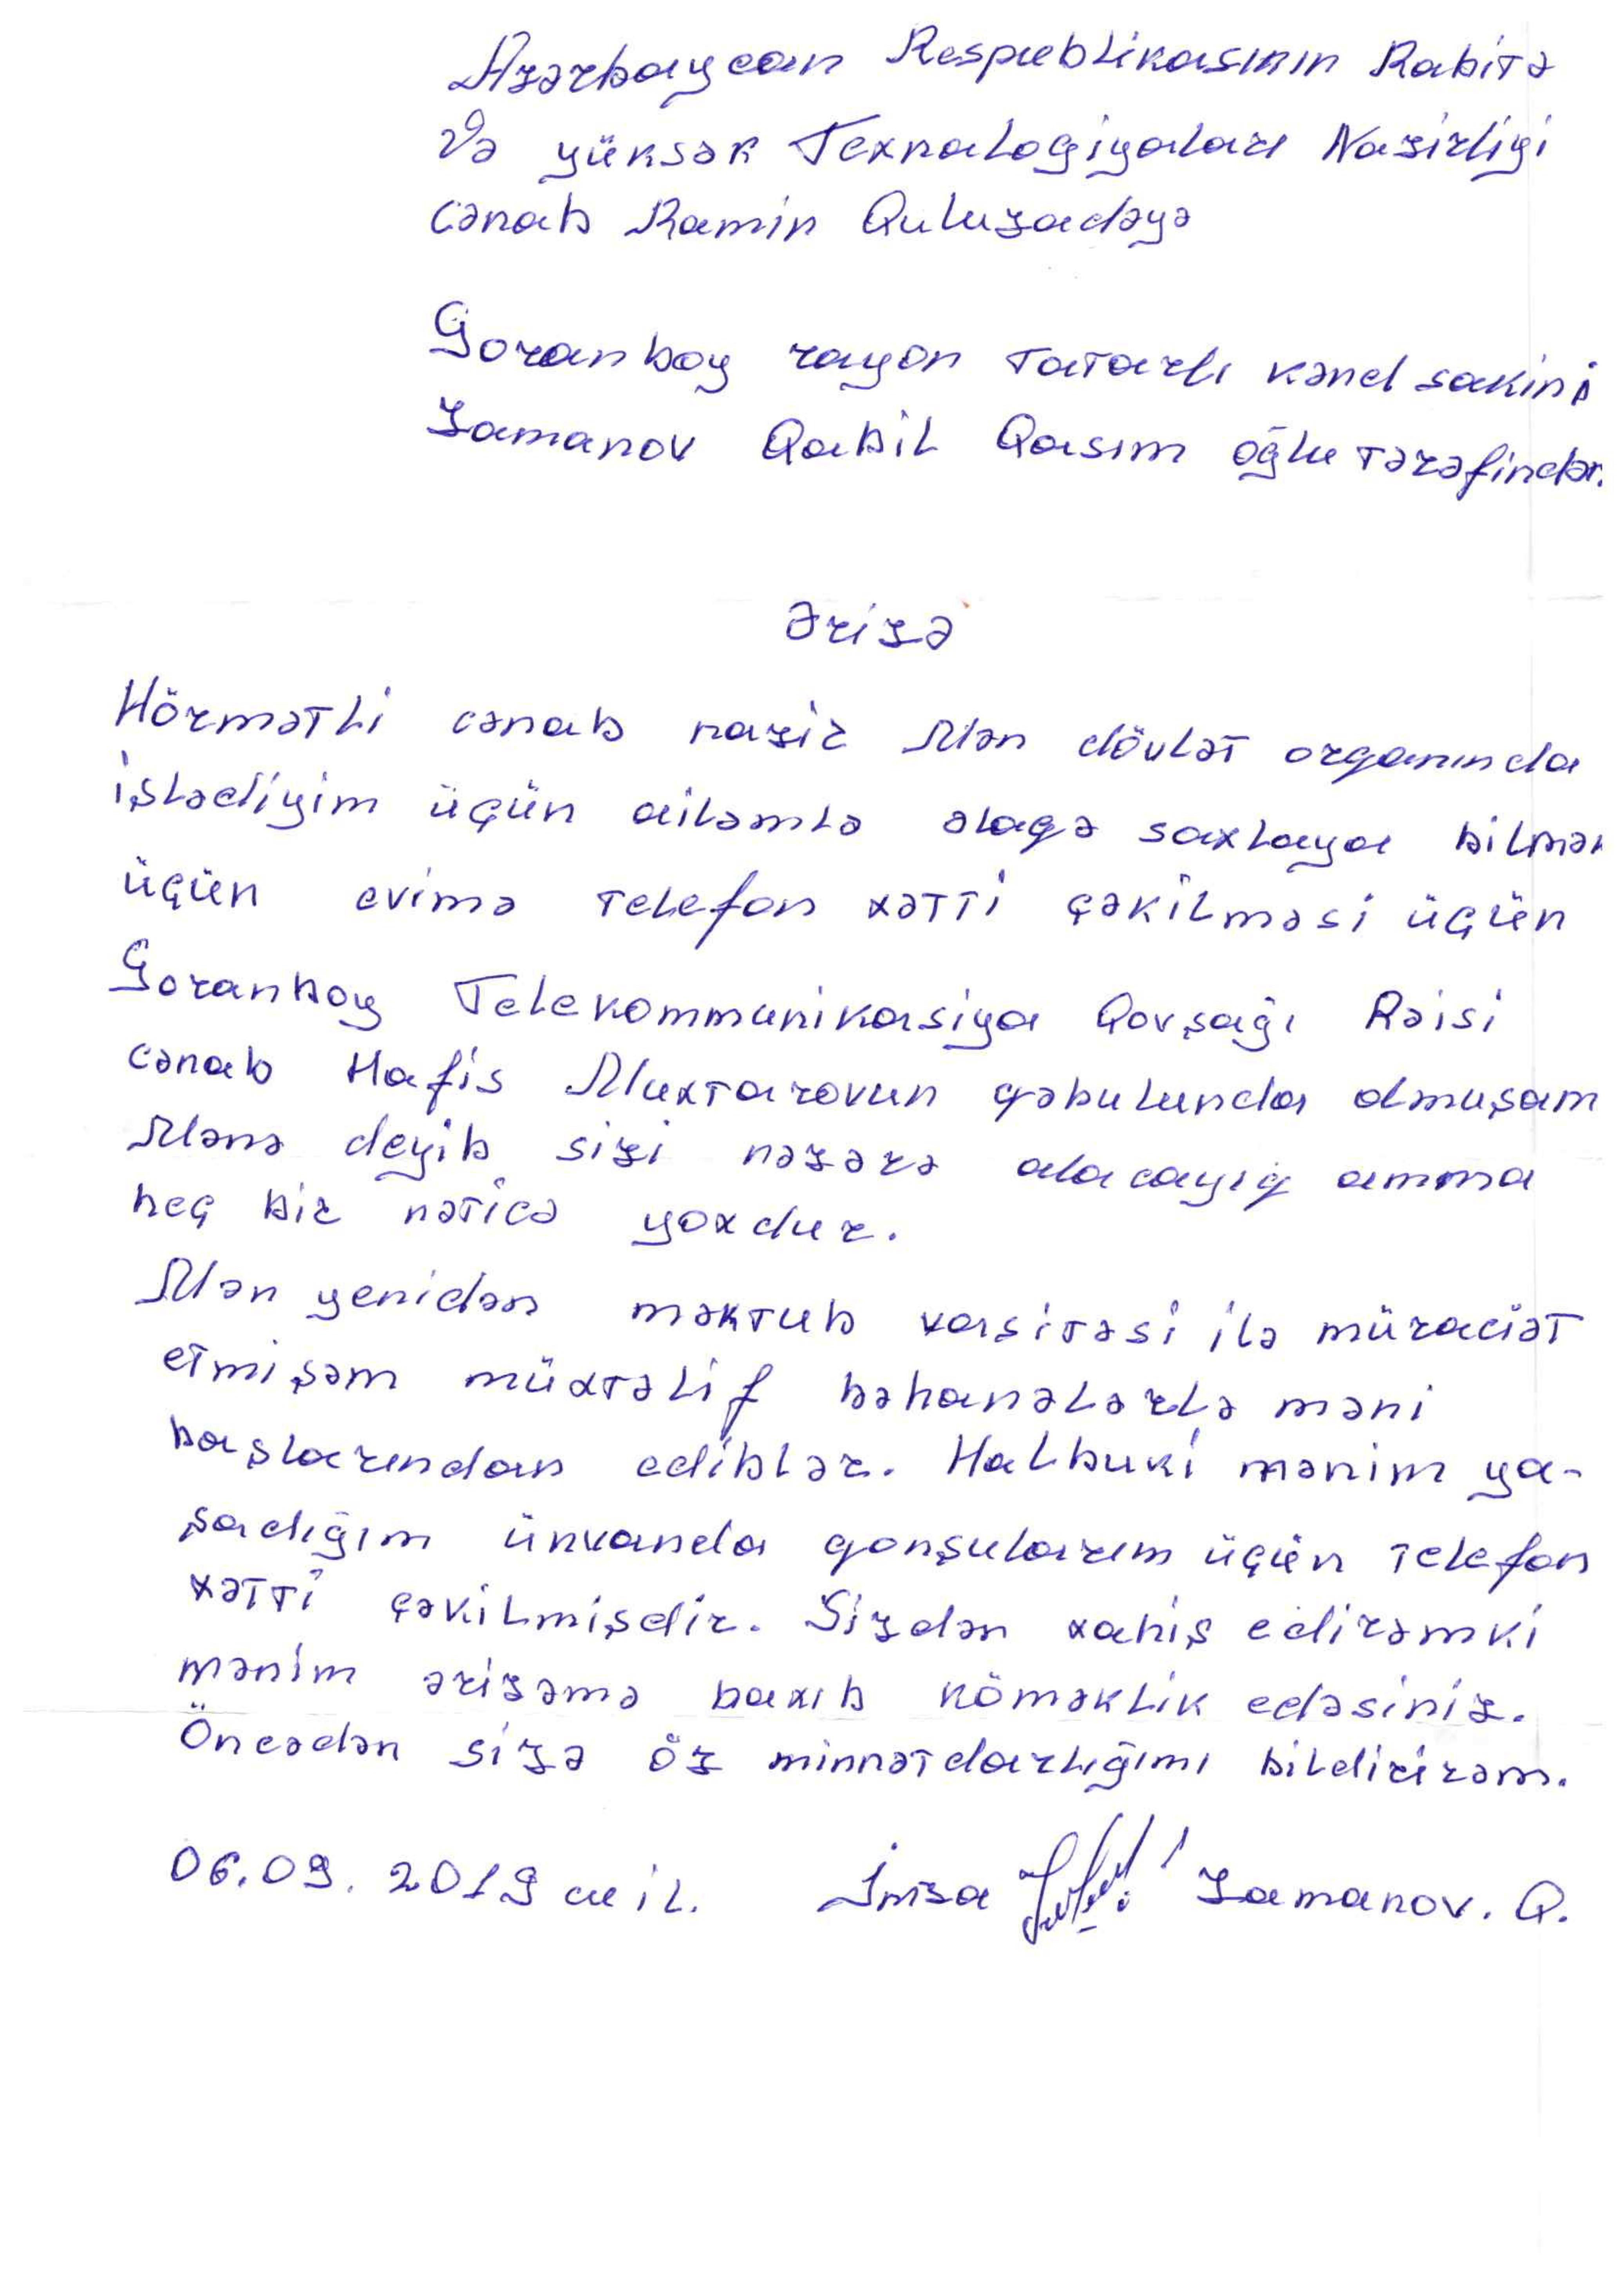 Azərbaycan Respublikasının Rabitə
Və yüksək Texnalogiyaları Nazirliyi
cənab Ramin Quluzadəyə
Goranboy rayon Tatarlı kənd sakini
Zamanov Qabil Qasım oğlu tərəfindən.
Ərizə
Hörmətli cənab nazir Mən dövlət organında
işlədiyim üçün ailəmlə əlagə saxlaya bilmək
üçün evimə telefon xətti çəkilməsi üçün
Goranboy Telekommunikasiya Qovşağı Rəisi
cənab Hafis Muxtarovun gəbulunda olmuşam
Mənə deyib sizi nəzərə alacayıg amma
heç bir nəticə yoxdur.
Mən yenidən məktub vasitəsi ilə müraciət
etmişəm müxtəlif bəhanələrlə məni
başlarından ediblər. Halbuki mənim ya-
şadığım ünvanda gonşularım üçün telefon
xətti çəkilmişdir. Sizdən xahiş edirəmki
mənim ərizəmə baxıb köməklik edəsiniz.
Öncədən sizə öz minnətdarlığımı bildirirəm.
06.09.2019 cu il. İmza Zamanov. Q.